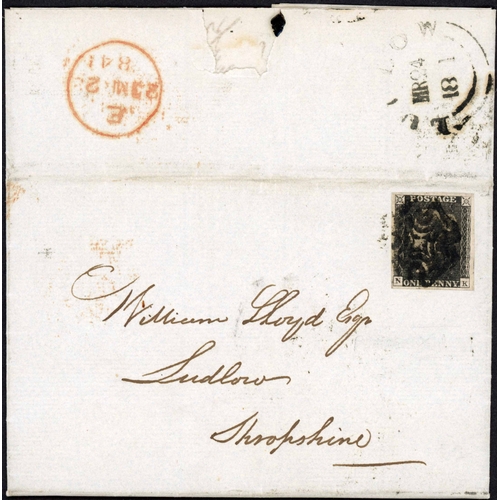 LUDLOW
MR24
18 1
E
23 MR 23
1841
POSTAGE
N ONE PENNY K
William Lloyd Esqr
Ludlow
Shropshire